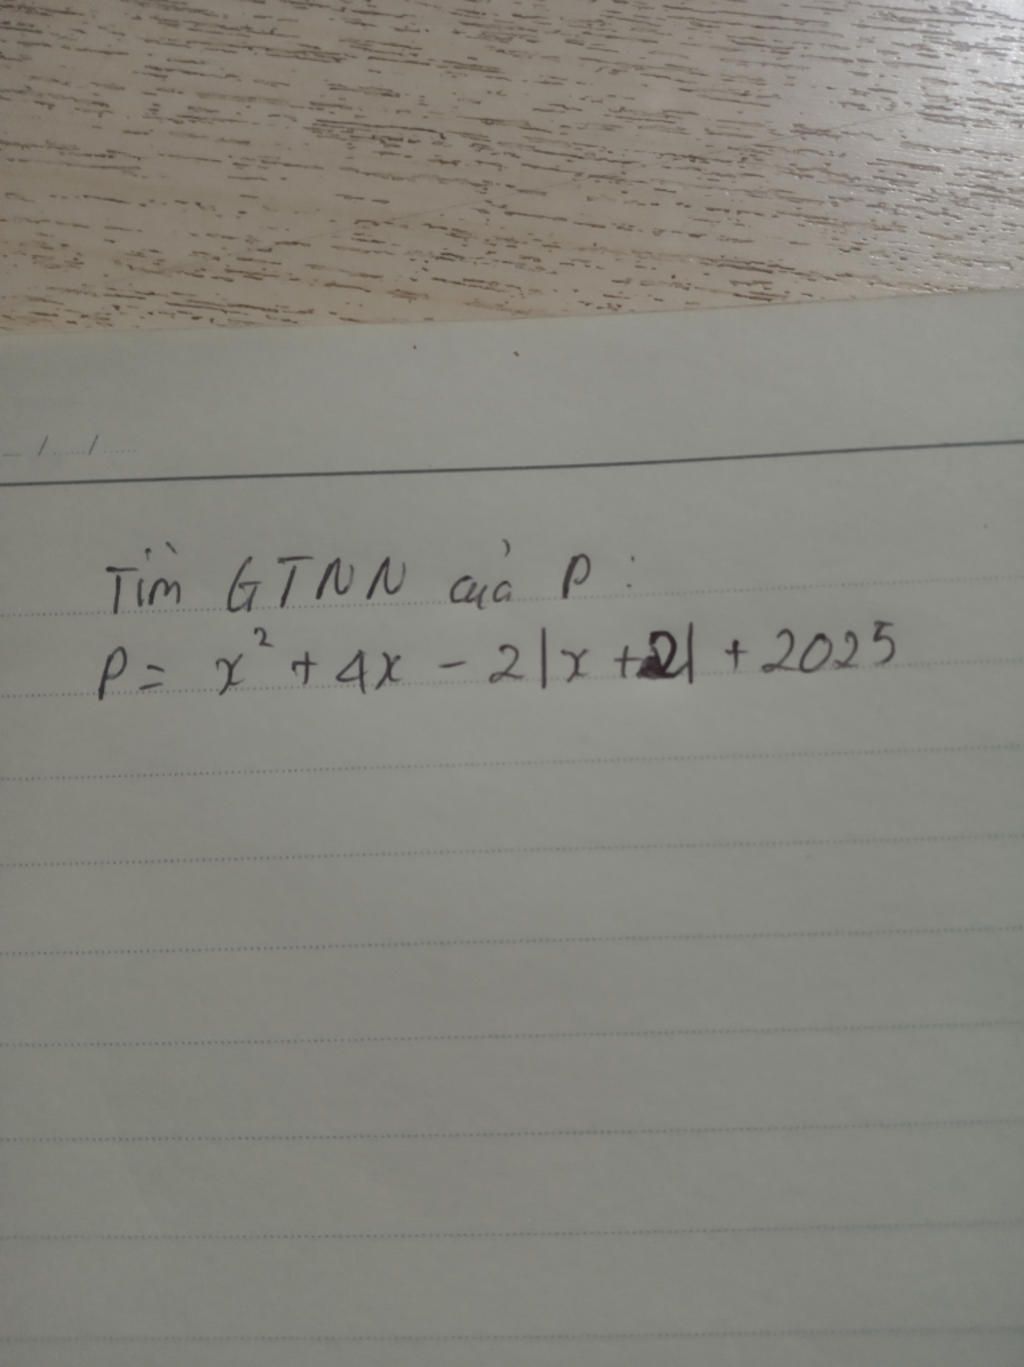 _ / ...... / ......
Tìm GTNN của P :
P = x² + 4x - 2|x + 2| + 2025